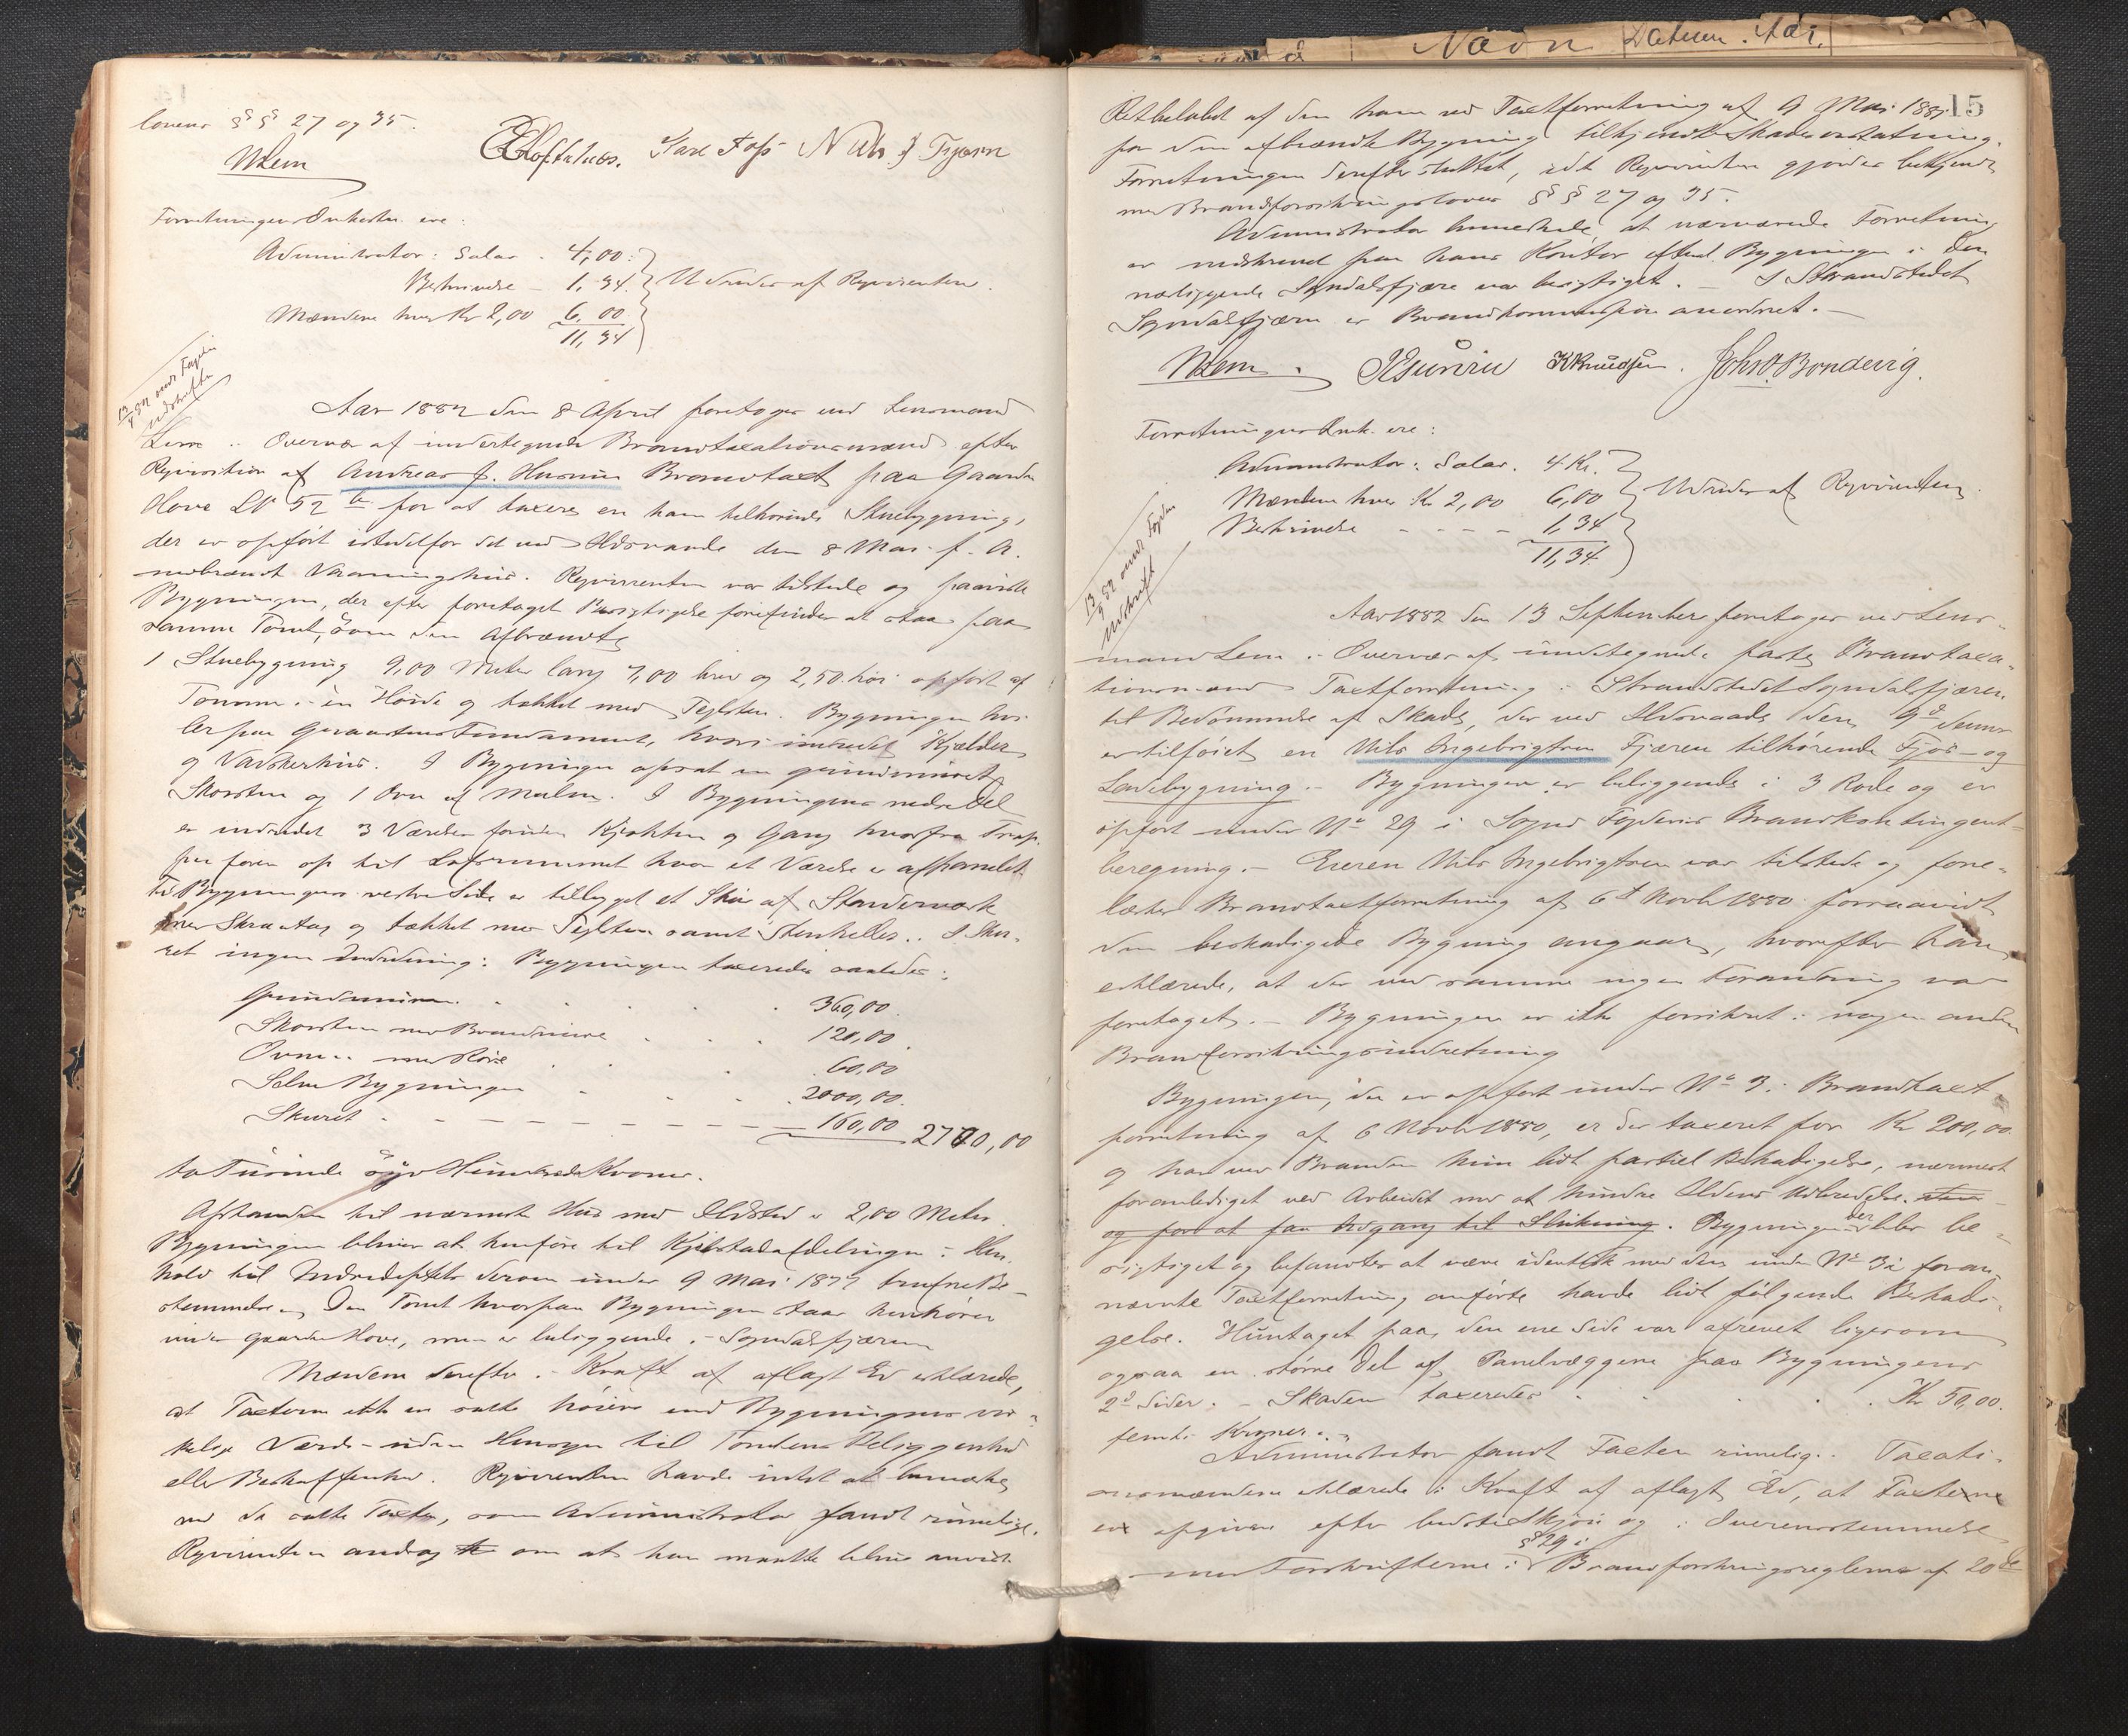 lovens §§ 27 og 35.
NLem Karl Foss Nils J Fjærn
Forretningens Omkostn. ere:
Administrator: Salar. 4,00
Beskrivelse 1,34 Udredes af Reqvirenten.
Mændene hver Kr 2,00 6,00
11,34
13/4 82 udskrift
Aar 1882 den 8 April foretoges ved Lensmand
Lem i Overvær af undertegnede Brandtaxationsmænd efter
Reqvisition af Andreas J. Husum Brandtaxt paa Gaarden
Hove LN 52 b for at taxere en ham tilhørende Stuebygning,
der er opført istedetfor det ved Ildsvaade den 8 Mai f. A.
nedbrændt Vaaningshus. Reqvirenten var tilstede og paaviste
Bygningen, der efter foretaget Besigtigelse forefindes at staa paa
samme Tomt, som den Afbrændte
1 Stuebygning 9,00 Meter lang 7,00 bred og 2,50 høi opført af
Tømmer i en Høide og tækket med Teglsten. Bygningen hvi-
ler paa Graastens Fundament, hvori indredet Kjælder
og Vaskerhus. I Bygningen opsat en grundmuret
Skorsten og 1 Ovn af Malm. I Bygningens nedre Del
er indredet 3 Værelser foruden Kjøkken og Gang hvorfra Trap-
per fører op til Loftsrummet hvor et Værelse er afpanelet.
Til Bygningens vestre Side er tilbygget et Skur af Stavværk
med Skraatag og tækket med Teglsten samt Stenheller. I Sku-
ret ingen Indredning. Bygningen taxeredes saaledes:
Grundmuren 360,00
Skorsten med Brandmure 120,00
Ovnen med Rør 60,00
Selve Bygningen 2000,00
Skuret 160,00 2700,00
to Tusinde syv Hundrede Kroner.
Afstanden til nærmeste Hus med Ildsted er 2,00 Meter.
Bygningen bliver at henføre til Kjøbstadafdelingen i Hen-
hold til Indredeptets derom under 9 Mai 1877 trufne Be-
stemmelse. Den Tomt hvorpaa Bygningen staar henhører
under Gaarden Hove, men er beliggende i Sogndalsfjæren
Mændene derefter i Kraft af aflagt Ed erklærede,
at Taxterne ikke er satte høiere end Bygningens vir-
kelige Værdi uden Hensyn til Tomtens Beliggenhed
eller Beskaffenhed. Reqvirenten havde intet at bemærke
ved de satte Taxter, som Administrator fandt rimelige.
Reqvirenten androg om at han maatte blive anvist
Navn Datum. Aar.
15
Restbeløbet af den ham ved Taxtforretning af 9 Mai 1881
for den afbrændte Bygning tilkjendte Skadeserstatning.
Forretningen derefter sluttet, idet Reqvirenten gjordes bekjendt
med Brandforsikringslovens §§ 27 og 35.
Administrator bemærkede, at nærværende Forretning
er nedskrevet paa hans Kontor efterat Bygningen i den
nærliggende Sogndalsfjære var besigtiget. – I Strandstedet
Sogndalsfjæren er Brandkommission anordnet. –
NLem. KKnudsen. Johs. O. Bondevig.
Forretningens Omk. ere:
Administrator: Salar. 4 Kr.
Mændene hver Kr 2,00 6,00 Udredes af Reqvirenten.
Beskrivelse 1,34
11,34
udskrift
Aar 1882 den 13 September foretoges ved Lens-
mand Lem i Overvær af undertegnede faste Brandtaxa-
tionsmænd Taxtforretning i Strandstedet Sogndalsfjæren
til Bedømmelse af Skade, der ved Ildsvaade den 9d dennes
er tilføiet en Nils Ingebrigtsen Fjæren tilhørende Fjøs- og
Ladebygning. – Bygningen er beliggende i 3 Rode og er
opført under No 29 i Sogns Fogderies Brandkontingent-
beregning. – Eieren Nils Ingebrigtsen var tilstede og fore-
læstes Brandtaxtforretning af 6te Novbr 1880 forsaavidt
den beskadigede Bygning angaar, hvorefter han
erklærede, at der ved samme ingen Forandring var
foretaget. – Bygningen er ikke forsikret i nogen anden
Brandforsikringsindretning
Bygningen, der er opført under No 3 i Brandtaxt-
forretning af 6 Novbr 1880, er der taxeret for Kr 200,00
og har ved Branden kun lidt partiel Beskadigelse, nærmest
foranlediget ved Arbeidet med at hindre Ildens Udbredelse.
og for at faa Adgang til Slukning. Bygningen der blev be-
sigtiget og befandtes at være identisk med den under No 3 i foran-
nævnte Taxtforretning anførte havde lidt følgende Beskadi-
gelse. Huntaget paa den ene Side var afrevet ligesom
ogsaa en større Del af Panelvæggene paa Bygningens
2de Sider. – Skaden taxeredes Kr 50,00.
femti Kroner.
Administrator fandt Taxten rimelig. Taxati-
onsmændene erklærede i Kraft af aflagt Ed, at Taxterne
er afgivne efter bedste Skjøn og i Overensstemmelse
§ 29 i
med Forskrifterne i Brandforsikringsreglerne af 20de